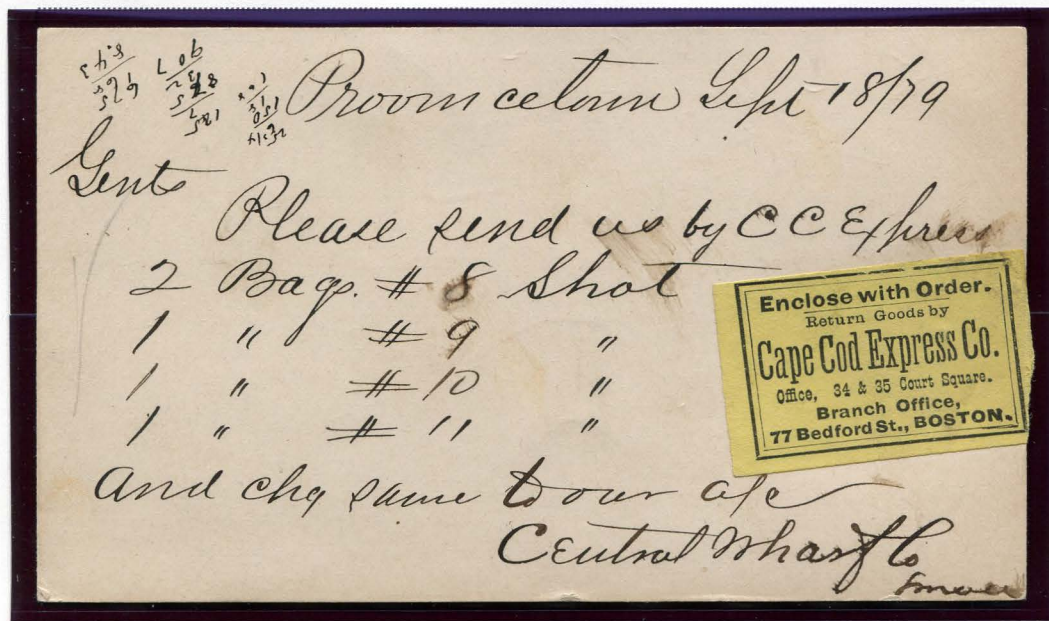 Provincetown Sept 18/79
Gents
Please send us by C C Express
2 Bags. # 8 Shot
1 " # 9 "
1 " # 10 "
1 " # 11 "
and chg same to our a/c
Central Wharf Co
Enclose with Order.
Return Goods by
Cape Cod Express Co.
Office, 34 & 35 Court Square.
Branch Office,
77 Bedford St., BOSTON.